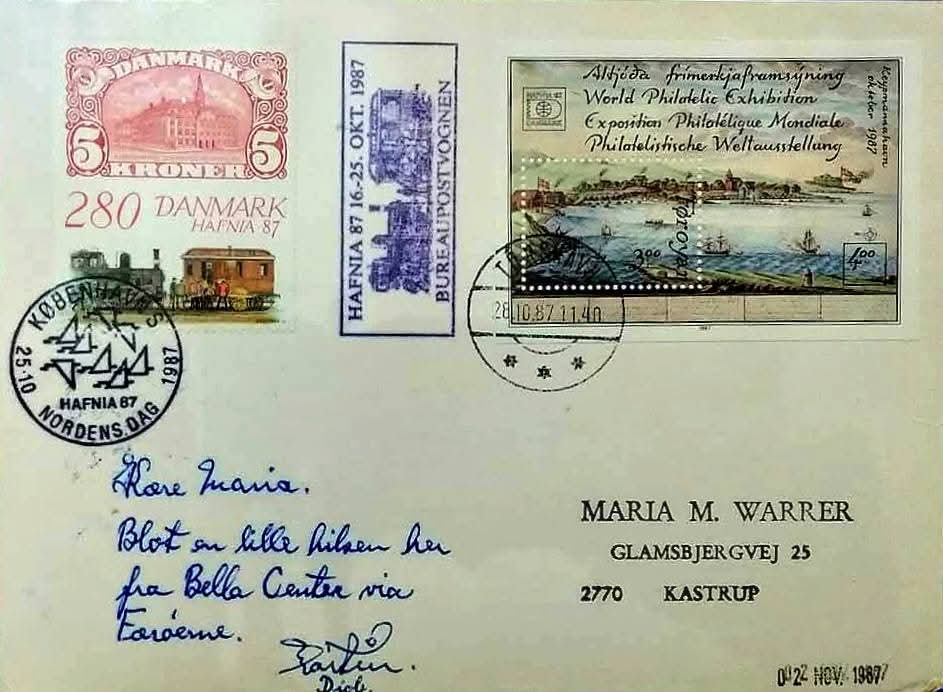 DANMARK
5 5
KRONER
280 DANMARK
HAFNIA '87
KØBENHAVNS
HAFNIA 87
25.10 1987
NORDENS DAG
HAFNIA 87 16.-25. OKT. 1987
BUREAUPOSTVOGNEN
Altjóða frímerkjaframsýning
World Philatelic Exhibition
Exposition Philatélique Mondiale
Philatelistische Weltausstellung
Keypmannahavn
oktober 1987
Føroyar
300
400
1987
28.10.87 11.40
Kære Maria.
Blot en lille hilsen her
fra Bella Center via
Færøerne.
MARIA M. WARRER
GLAMSBJERGVEJ 25
2770 KASTRUP
02 NOV. 1987